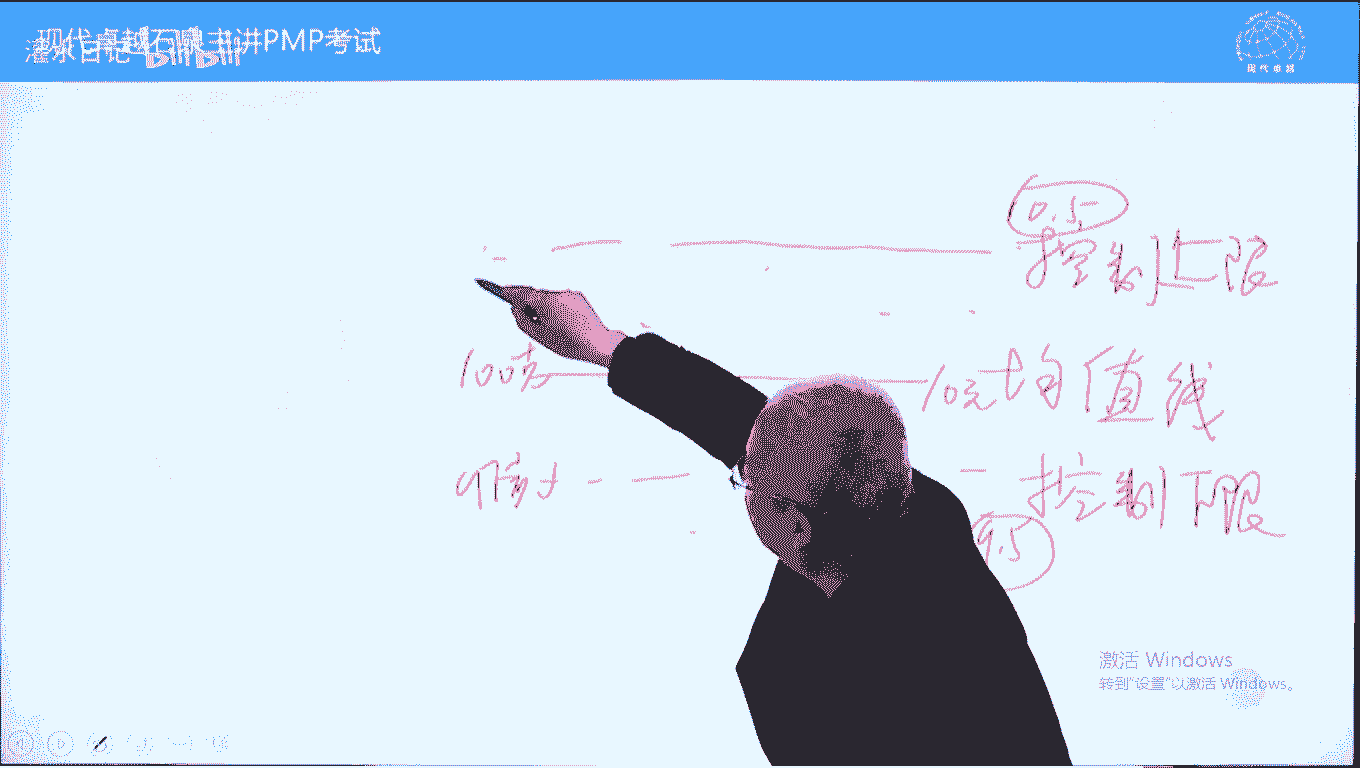 现代卓越石泉主讲PMP考试
灌水日记 bilibili
现代卓越
0.5
控制上限
100克
10元 均值线
控制下限
9.5
激活 Windows
转到"设置"以激活 Windows。